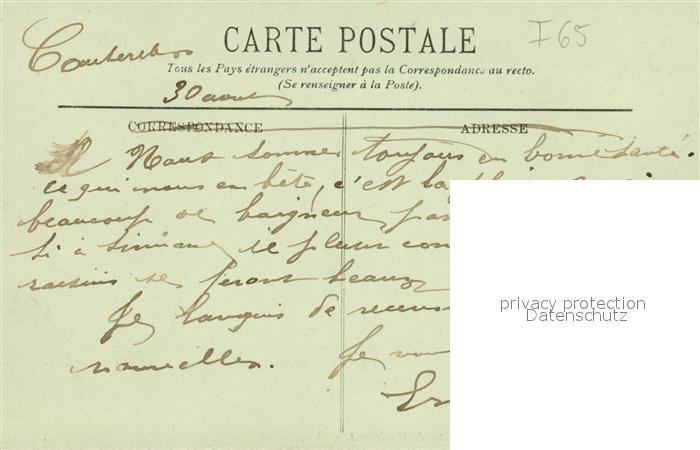 Cauterets
CARTE POSTALE
F65
Tous les Pays étrangers n'acceptent pas la Correspondance au recto.
(Se renseigner à la Poste).
30 aout
CORRESPONDANCE
ADRESSE
Nous sommes toujours en bonne santé.
ce qui nous embête, c'est la
beaucoup de baigneurs
si à pleut
raisins se feront beaux
Je languis de recevoir
nouvelles. Je
privacy protection
Datenschutz